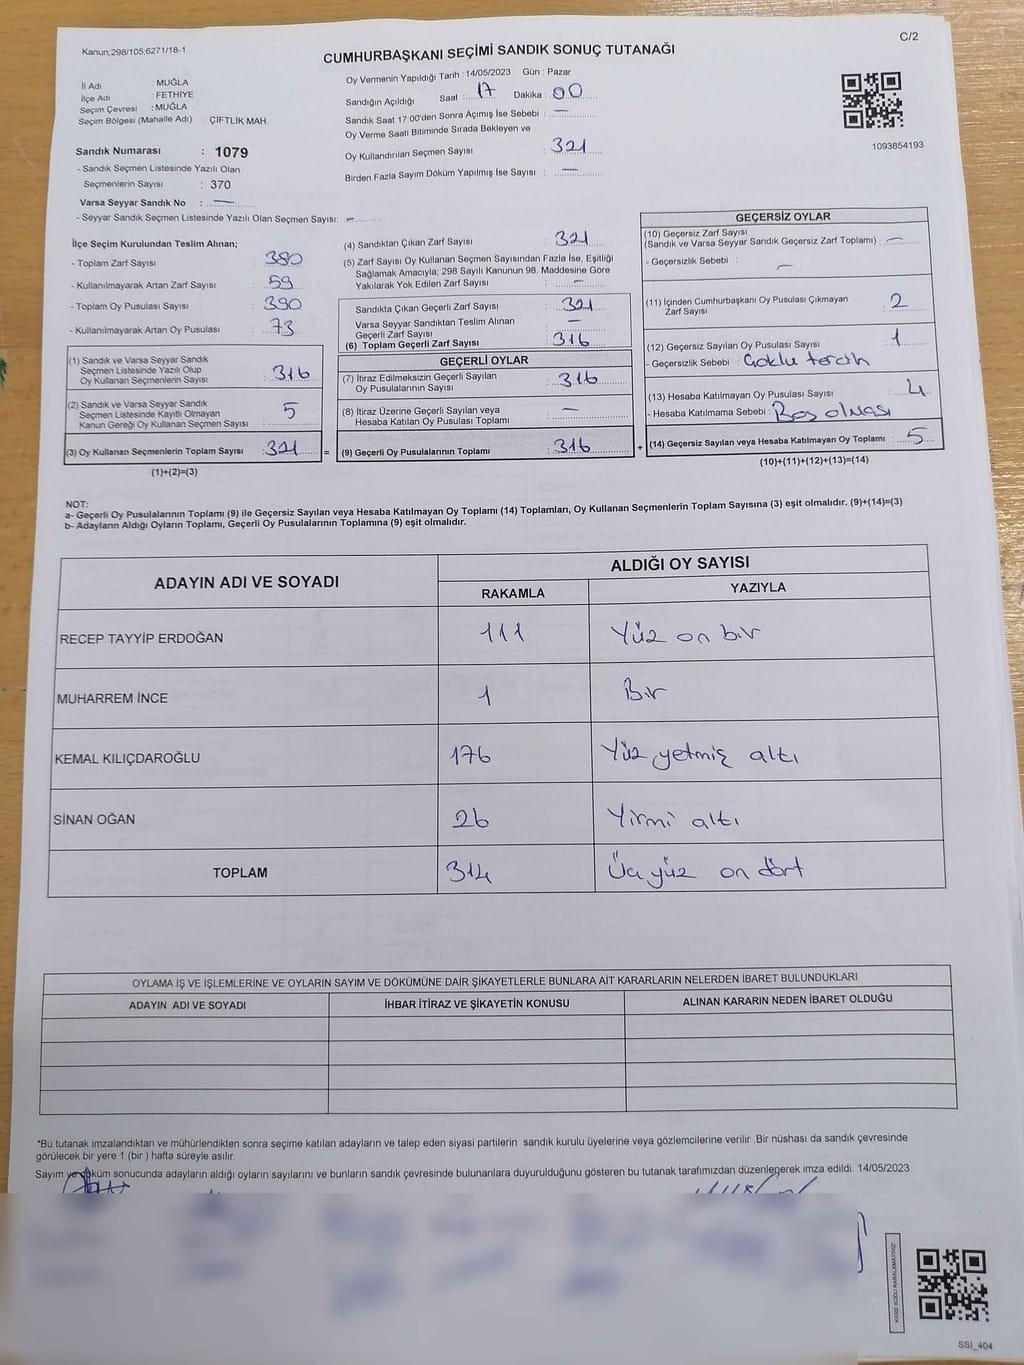 Kanun;298/105;6271/18-1
C/2
CUMHURBAŞKANI SEÇİMİ SANDIK SONUÇ TUTANAĞI
İl Adı : MUĞLA
İlçe Adı : FETHİYE
Seçim Çevresi : MUĞLA
Seçim Bölgesi (Mahalle Adı) : ÇİFTLİK MAH.
Oy Vermenin Yapıldığı Tarih : 14/05/2023 Gün : Pazar
Sandığın Açıldığı Saat : 17 Dakika : 00
Sandık Saat 17:00'den Sonra Açımış İse Sebebi : —
Oy Verme Saati Bitiminde Sırada Bekleyen ve
Oy Kullandırılan Seçmen Sayısı : 321
Birden Fazla Sayım Döküm Yapılmış İse Sayısı : —
1093854193
Sandık Numarası : 1079
- Sandık Seçmen Listesinde Yazılı Olan
Seçmenlerin Sayısı : 370
Varsa Seyyar Sandık No : —
- Seyyar Sandık Seçmen Listesinde Yazılı Olan Seçmen Sayısı: —
İlçe Seçim Kurulundan Teslim Alınan;
- Toplam Zarf Sayısı : 380
- Kullanılmayarak Artan Zarf Sayısı : 59
- Toplam Oy Pusulası Sayısı : 390
- Kullanılmayarak Artan Oy Pusulası : 73
(1) Sandık ve Varsa Seyyar Sandık
Seçmen Listesinde Yazılı Olup
Oy Kullanan Seçmenlerin Sayısı : 316
(2) Sandık ve Varsa Seyyar Sandık
Seçmen Listesinde Kayıtlı Olmayan
Kanun Gereği Oy Kullanan Seçmen Sayısı : 5
(3) Oy Kullanan Seçmenlerin Toplam Sayısı : 321 =
(1)+(2)=(3)
(4) Sandıktan Çıkan Zarf Sayısı : 321
(5) Zarf Sayısı Oy Kullanan Seçmen Sayısından Fazla İse, Eşitliği
Sağlamak Amacıyla; 298 Sayılı Kanunun 98. Maddesine Göre
Yakılarak Yok Edilen Zarf Sayısı : —
Sandıkta Çıkan Geçerli Zarf Sayısı : 321
Varsa Seyyar Sandıktan Teslim Alınan
Geçerli Zarf Sayısı : —
(6) Toplam Geçerli Zarf Sayısı : 316
GEÇERLİ OYLAR
(7) İtiraz Edilmeksizin Geçerli Sayılan
Oy Pusulalarının Sayısı : 316
(8) İtiraz Üzerine Geçerli Sayılan veya
Hesaba Katılan Oy Pusulası Toplamı : —
(9) Geçerli Oy Pusulalarının Toplamı : 316 +
GEÇERSİZ OYLAR
(10) Geçersiz Zarf Sayısı
(Sandık ve Varsa Seyyar Sandık Geçersiz Zarf Toplamı) : —
- Geçersizlik Sebebi : —
(11) İçinden Cumhurbaşkanı Oy Pusulası Çıkmayan
Zarf Sayısı : 2
(12) Geçersiz Sayılan Oy Pusulası Sayısı : 1
- Geçersizlik Sebebi : Çoklu tercih
(13) Hesaba Katılmayan Oy Pusulası Sayısı : 4
- Hesaba Katılmama Sebebi : Boş olması
(14) Geçersiz Sayılan veya Hesaba Katılmayan Oy Toplamı : 5
(10)+(11)+(12)+(13)=(14)
NOT:
a- Geçerli Oy Pusulalarının Toplamı (9) ile Geçersiz Sayılan veya Hesaba Katılmayan Oy Toplamı (14) Toplamları, Oy Kullanan Seçmenlerin Toplam Sayısına (3) eşit olmalıdır. (9)+(14)=(3)
b- Adayların Aldığı Oyların Toplamı, Geçerli Oy Pusulalarının Toplamına (9) eşit olmalıdır.
ADAYIN ADI VE SOYADI
ALDIĞI OY SAYISI
RAKAMLA YAZIYLA
RECEP TAYYİP ERDOĞAN 111 Yüz on bir
MUHARREM İNCE 1 Bir
KEMAL KILIÇDAROĞLU 176 Yüz yetmiş altı
SİNAN OĞAN 26 Yirmi altı
TOPLAM 314 Üç yüz on dört
OYLAMA İŞ VE İŞLEMLERİNE VE OYLARIN SAYIM VE DÖKÜMÜNE DAİR ŞİKAYETLERLE BUNLARA AİT KARARLARIN NELERDEN İBARET BULUNDUKLARI
ADAYIN ADI VE SOYADI İHBAR İTİRAZ VE ŞİKAYETİN KONUSU ALINAN KARARIN NEDEN İBARET OLDUĞU
*Bu tutanak imzalandıktan ve mühürlendikten sonra seçime katılan adayların ve talep eden siyasi partilerin sandık kurulu üyelerine veya gözlemcilerine verilir .Bir nüshası da sandık çevresinde
görülecek bir yere 1 (bir ) hafta süreyle asılır.
Sayım ve döküm sonucunda adayların aldığı oyların sayılarını ve bunların sandık çevresinde bulunanlara duyurulduğunu gösteren bu tutanak tarafımızdan düzenlenerek imza edildi. 14/05/2023
KARE KODU KARALAMAYINIZ!
SSI_404